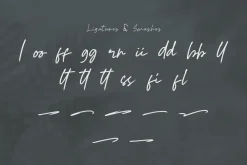 Ligatures & Swashes
l oo ff gg rr ii dd bb ll
tt tt tt ss fi fl